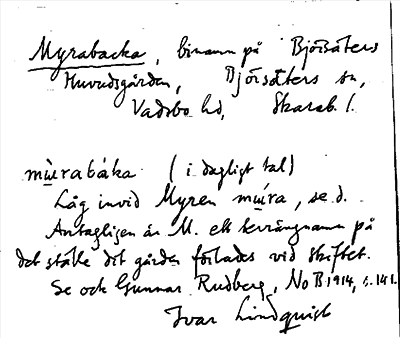 Myrabacka, binamn på Björsäters
Huvudsgården, Björsäters sn,
Vadsbo hd, Skarab. l.
mùrabáka (i dagligt tal)
Låg invid Myren mùra, se d.
Antagligen är M. ett terrängnamn på
det ställe dit gården förlades vid skiftet.
Se och Gunnar Rudberg, NoB 1914, s. 141.
Ivar Lindquist